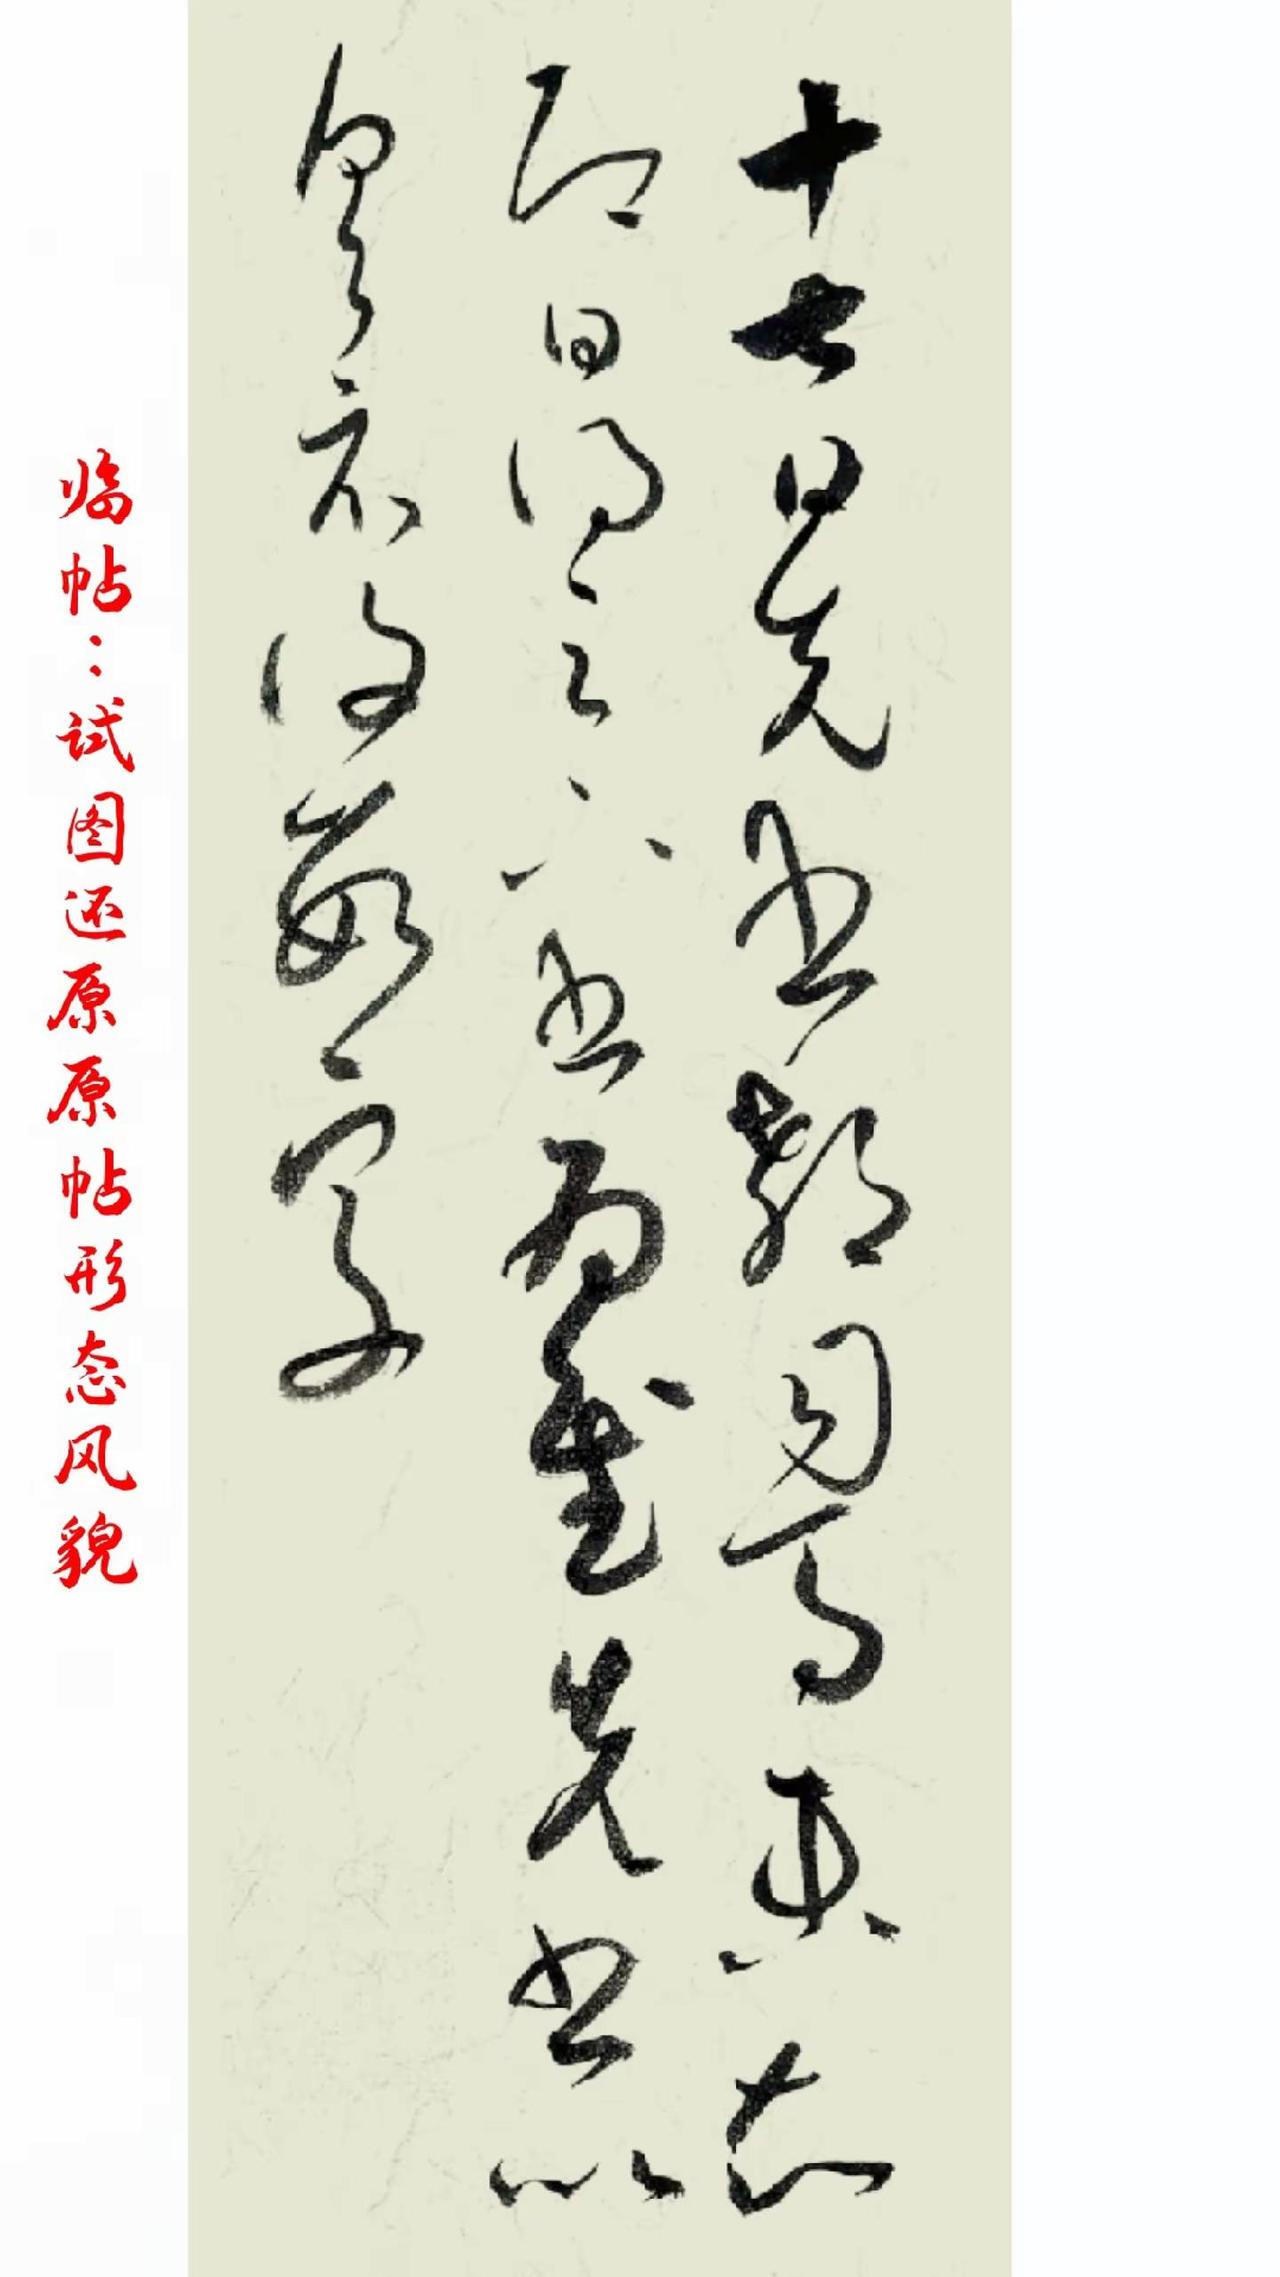 十七日先書郗司馬未去
即日得足下書為慰先書以
具示復數字
临帖:试图还原原帖形态风貌